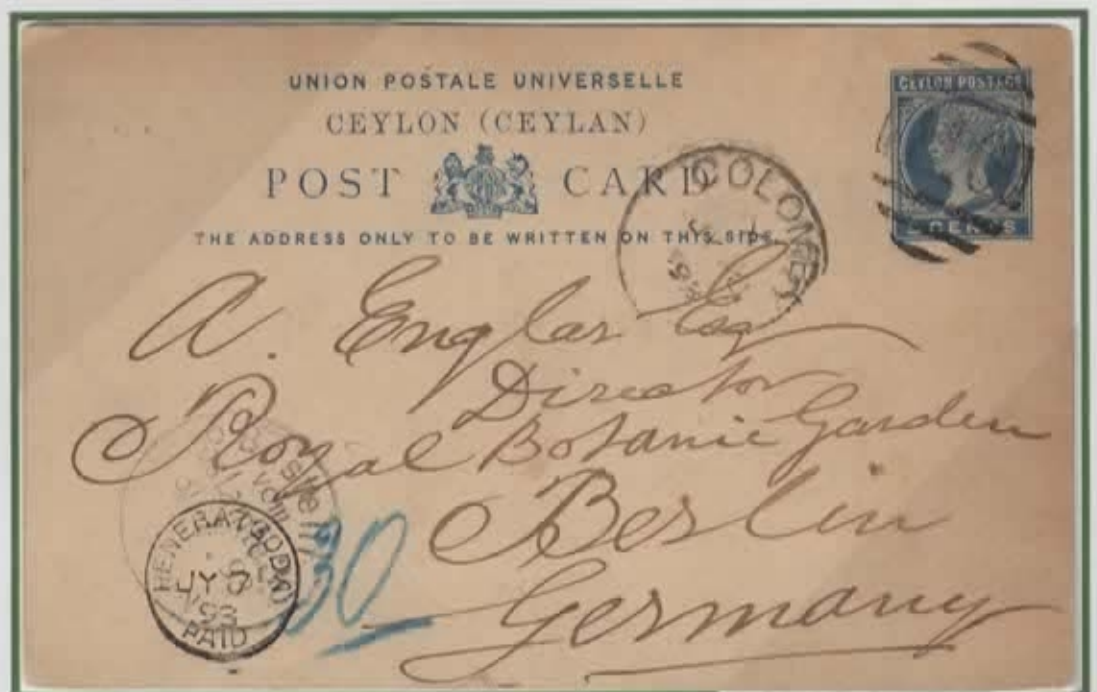 UNION POSTALE UNIVERSELLE
CEYLON (CEYLAN)
POST CARD
THE ADDRESS ONLY TO BE WRITTEN ON THIS SIDE.
CEYLON POSTAGE
CENTS
COLOMBO
A. Englar Esq
Director
Royal Botanic Garden
Berlin
Germany
30
HENERATGODA
JY
93
PAID